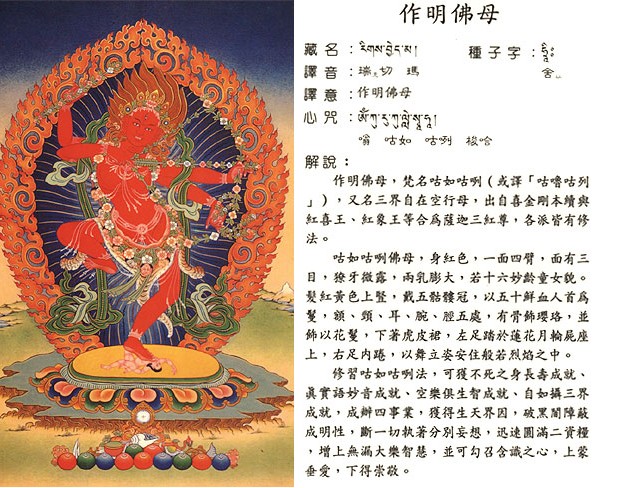 作明佛母
藏名：རིགས་བྱེད་མ། 種子字：ཧྲཱིཿ
譯音：瑞 切 瑪 舍
譯意：作明佛母
心咒：ༀ་ཀུ་རུ་ཀུ་ལླེ་སྭཱ་ཧཱ།
嗡 咕如 咕咧 梭哈
解說：
作明佛母，梵名咕如咕咧（或譯「咕嚕咕列
」），又名三界自在空行母，出自喜金剛本續與
紅喜王、紅象王等合為薩迦三紅尊，各派皆有修
法。
咕如咕咧佛母，身紅色，一面四臂，面有三
目，獠牙微露，兩乳膨大，若十六妙齡童女貌。
髮紅黃色上豎，戴五骷髏冠，以五十鮮血人首為
鬘，額、頸、耳、腕、脛五處，有骨飾瓔珞，並
飾以花鬘，下著虎皮裙，左足踏於蓮花月輪屍座
上，右足內踡，以舞立姿安住般若烈焰之中。
修習咕如咕咧法，可獲不死之身長壽成就、
真實語妙音成就、空樂俱生智成就、自如攝三界
成就，成辦四事業，獲得生天界因，破黑闇障蔽
成明性，斷一切執著分別妄想，迅速圓滿二資糧
，增上無漏大樂智慧，並可勾召含識之心，上蒙
垂愛，下得崇敬。